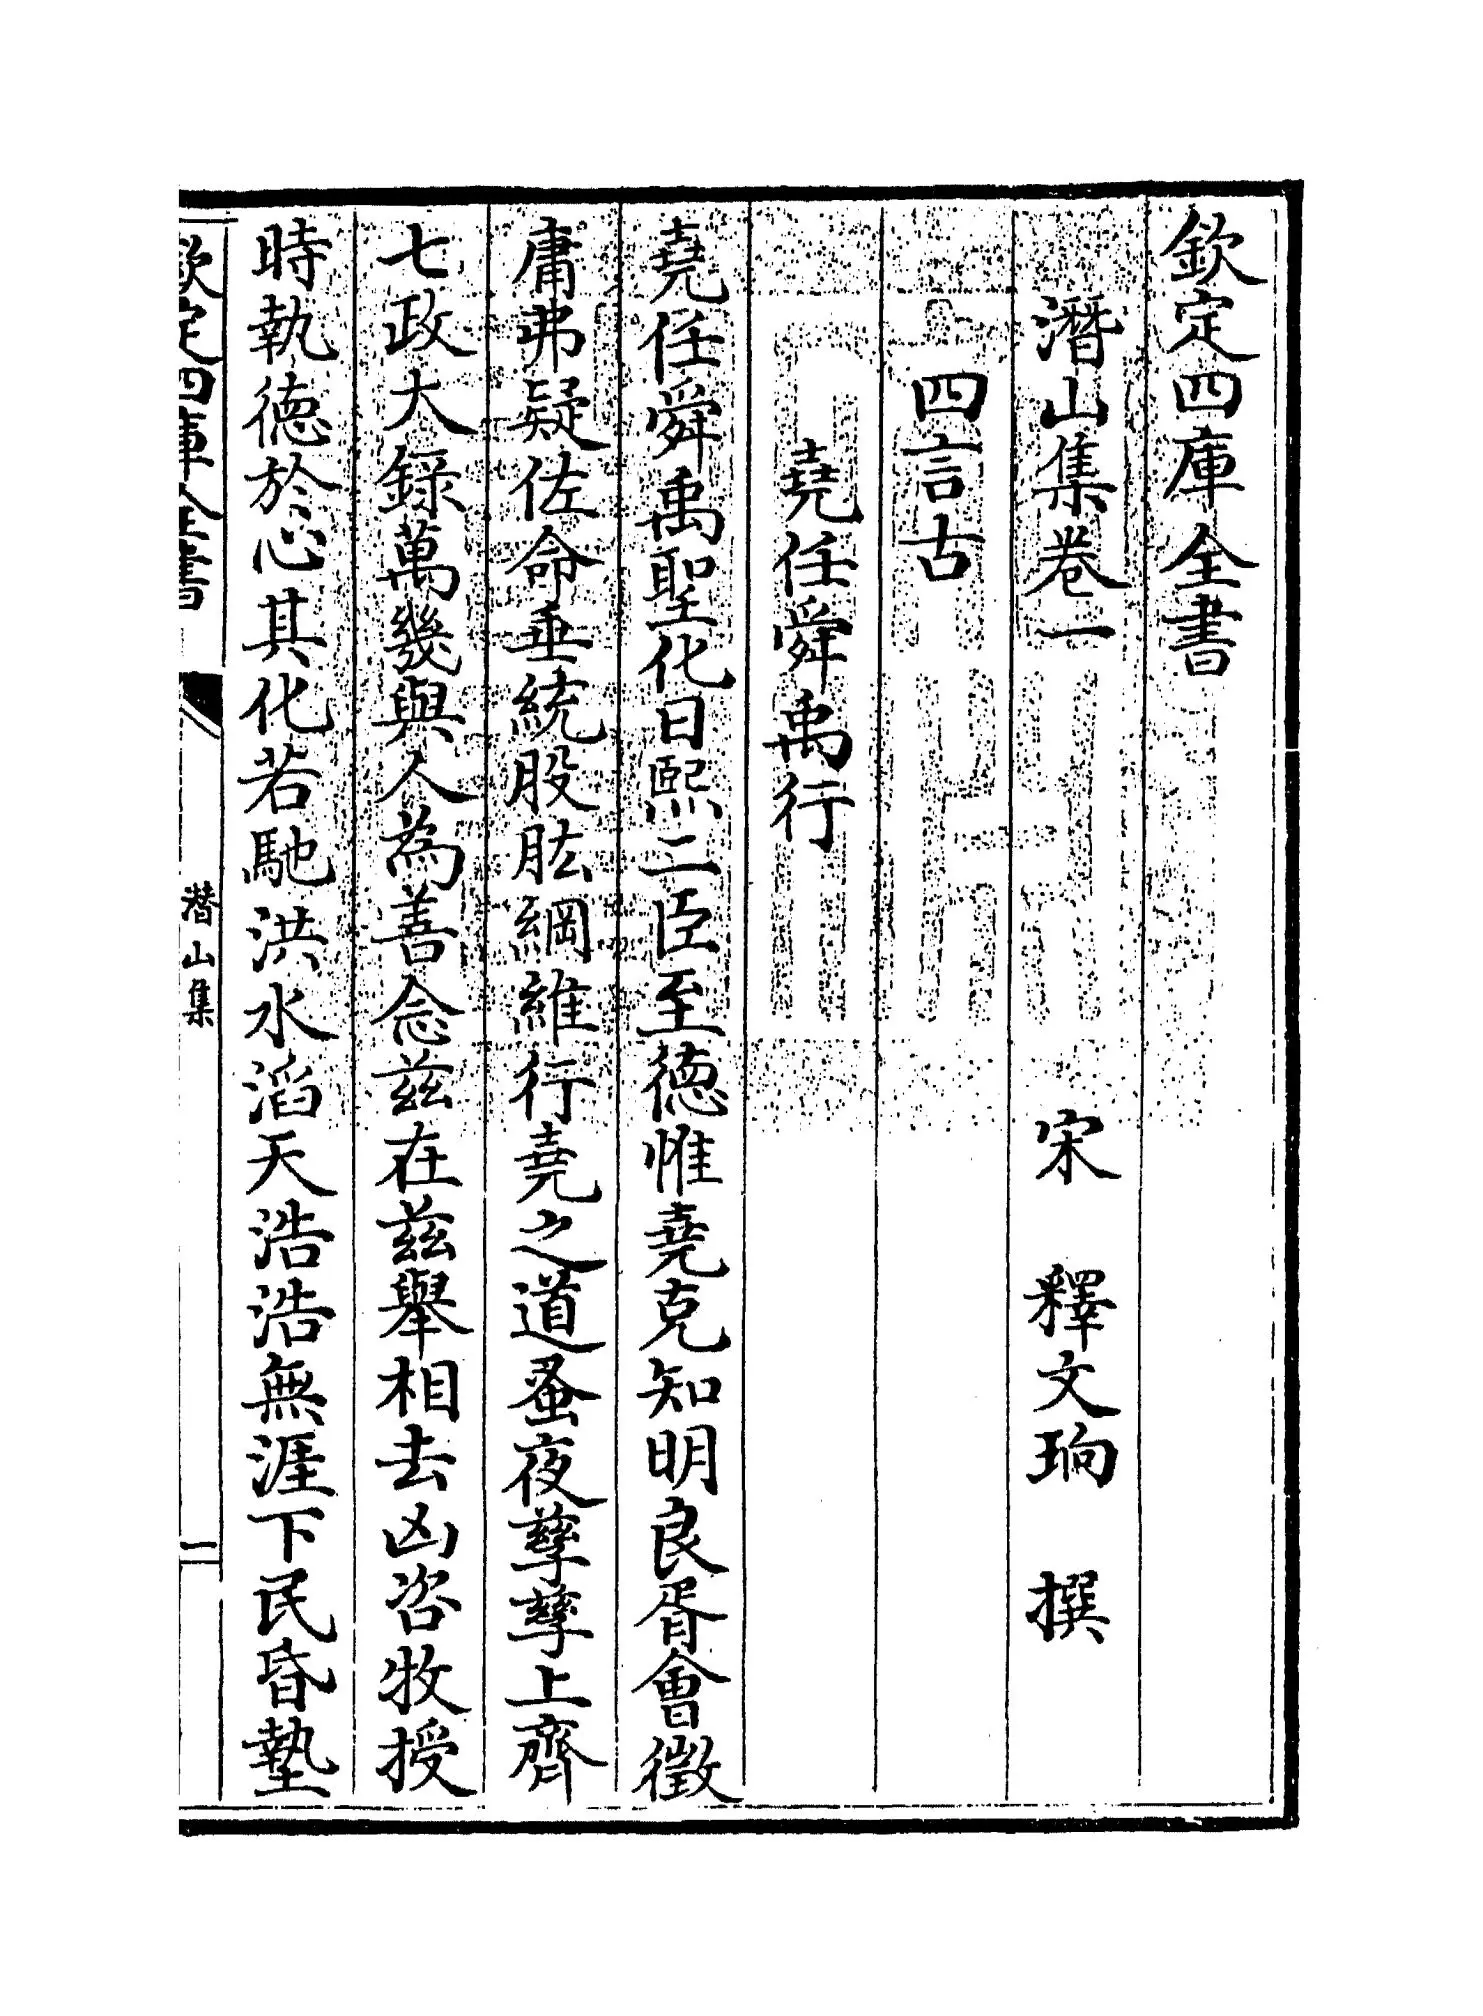 欽定四庫全書
潛山集卷一
宋 釋文珦 撰
四言古
堯任舜禹行
堯任舜禹聖化日熙二臣至德惟堯克知明良胥會徵
庸弗疑佐命垂統股肱綱維行堯之道蚤夜孳孳上齊
七政大錄萬幾與人為善念茲在茲舉相去凶咨牧授
時執德於心其化若馳洪水滔天浩浩無涯下民昏墊
欽定四庫全書
潛山集
一